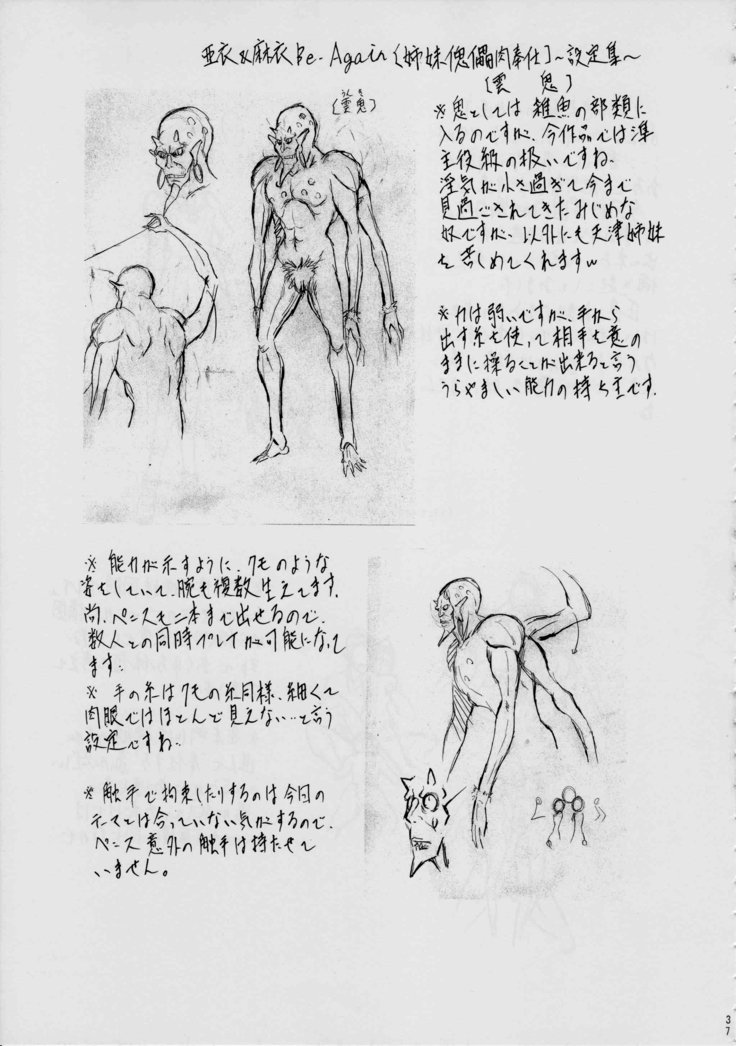 亜衣&麻衣Be-Again〔姉妹傀儡肉奉仕〕~設定集~
〔雲鬼〕
〔雲鬼〕
※鬼としては雑魚の部類に
入るのですが、今作品では準
主役級の扱いですね、
淫気が小さ過ぎて今まで
見過ごされてきたみじめな
奴ですが、以外にも天津姉妹
を苦しめてくれますw
※力は弱いですが、手から
出す糸を使って相手を意の
ままに操ることが出来ると言う
うらやましい能力の持ち主です.
※ 能力が示すように、クモのような
姿をしていて、腕も複数生えてます.
尚、ペニスも二本まで出せるので、
数人との同時プレイが可能になって
ます.
※ 手の糸はクモの糸同様、細くて
肉眼ではほとんど見えない…と言う
設定ですね…
※触手で拘束したりするのは今回の
テーマとは合っていない気がするので、
ペニス意外の触手は持たせて
いません。
37